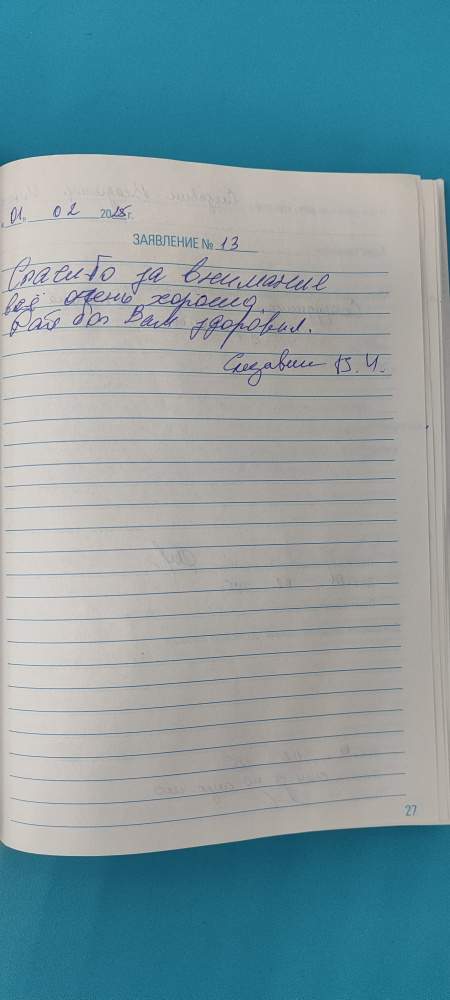 "01" 02 2025г.
ЗАЯВЛЕНИЕ № 13
Спасибо за внимание
всё очень хорошо.
Дай бог Вам здоровья.
В. И.
27